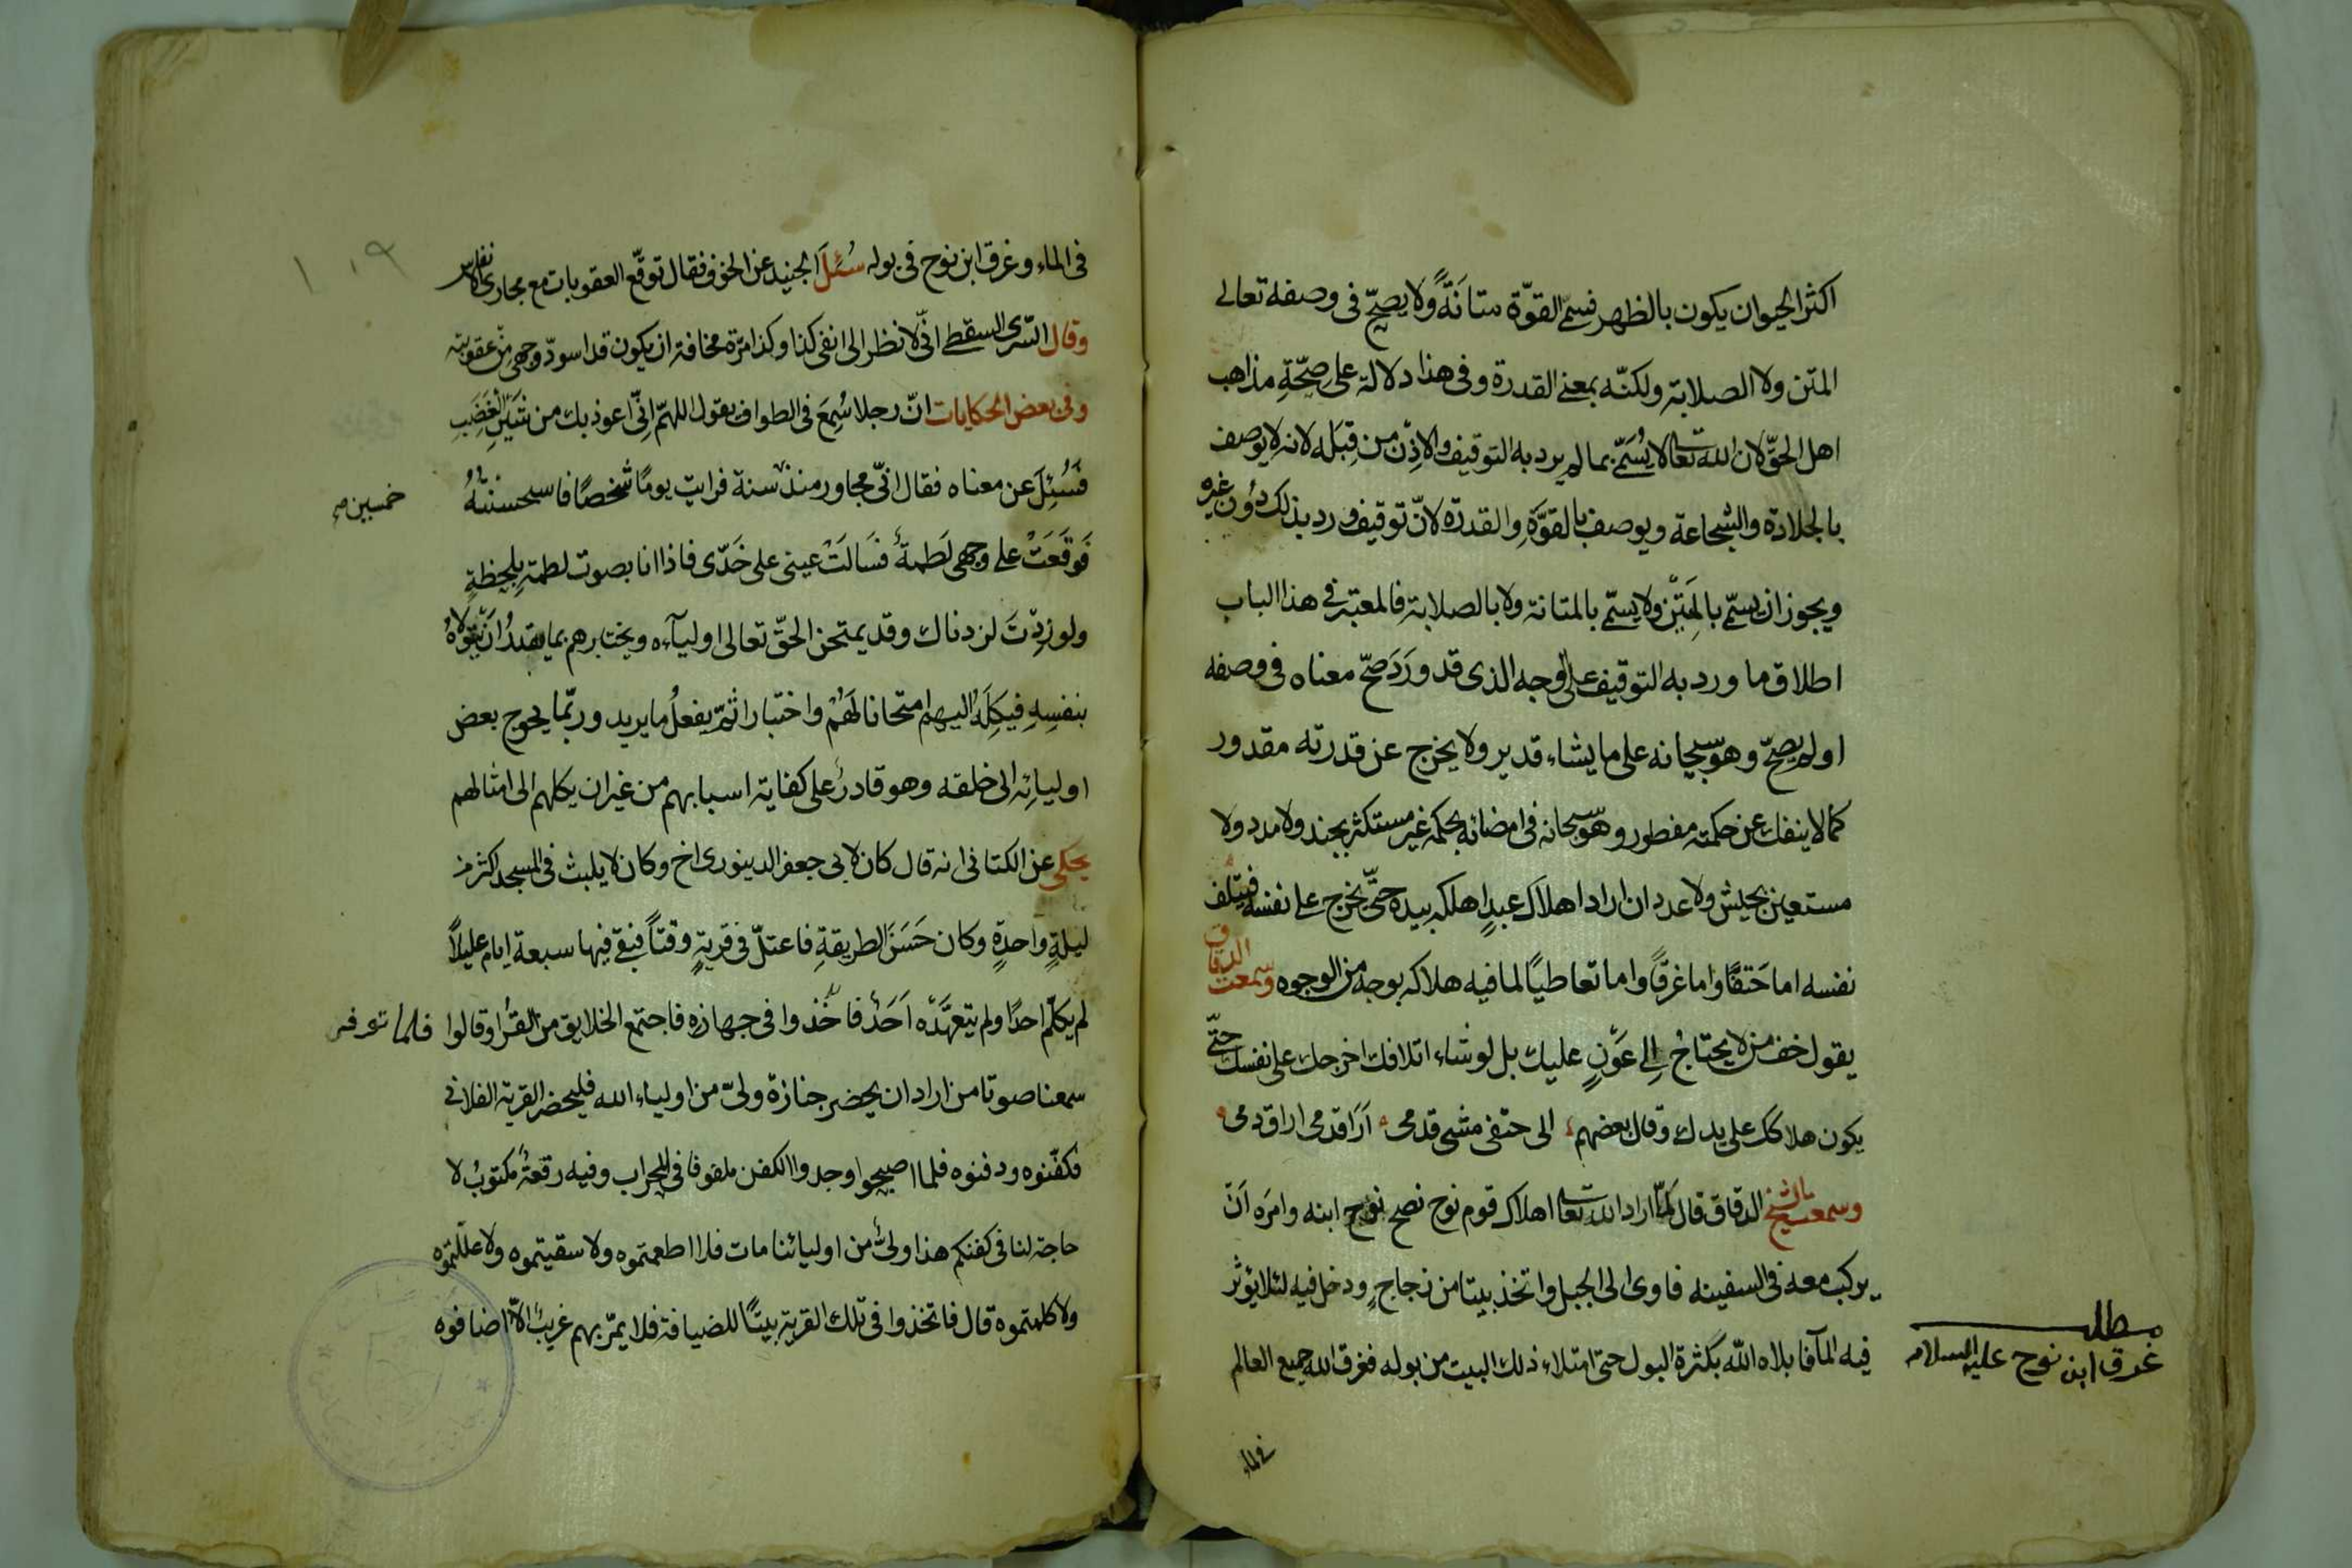 اكثر الحيوان يكون بالظهر فسمّى القوّة متانَةً ولا يصحّ فى وصفه تعالى
المتن ولا الصلابة ولكنّه بمعنى القدرة وفى هذا دلالة على صحّةِ مذاهب
اهل الحقّ لان الله تعالى لا يُسَمّى بما لم يرد به التوقيف والاِذْن من قِبَله لانه لا يوصف
بالجلادة والشجاعة ويوصف بالقوَّةِ والقدرة لانّ توقيف ورد بذلك دُون غيره
ويجوز ان يسمّى بالمَتِيْن ولا يسمّى بالمتانة ولا بالصلابة فالمعتبر فى هذا الباب
اطلاق ما ورد به التوقيف على الوجه الذى قد وَرَدَ صحّ معناه فى وصفه
او لم يصحّ وهو سبحانه على ما يشاء قدير ولا يخرج عن قدرته مقدور
كما لا ينفك عن حكمته مفطور وهو سبحانه فى امضائه بحكمه غير مستكثر بجند ولا مدد ولا
مستعين بجيش ولا عدد ان اراد اهلاك عبدٍ اهلكه بيده حتّى يخرج على نفسه فيتلف
نفسه اما خنقًا واما غرقًا واما تعاطيًا لما فيه هلاكه بوجه من الوجوه وسمعت الدقاق
يقول خف من لا يحتاجُ اِلى عَوْنٍ عليك بل لو شاء اتلافك اخرجك على نفسك حتّى
يكون هلاكك على يدك وقال بعضهم الى حتفى مشى قدمى اَرَا قدمى اراق دمى
وسمعت الشيخ الدقاق قال لَمّا اراد الله تعالى اهلاك قوم نوح نصح نوح ابنه وامَره اَنّ
يركب معه فى السفينه فاوى الى الجبل واتخذ بيتا من زجاج ودخل فيه لئلا يؤثر
فيه المآء فابلاه الله بكثرة البول حتى امتلاء ذلك البيت من بوله فغرق الله جميع العالم
مطلب
غرق ابن نوح عليه السلام
فى الماء
١٠٩
فى الماء وغرق ابن نوح فى بوله سُئلَ الجنيد عن الخوف فقال توقّع العقوبات مع مجارى الانفاس
وقال السّرى السقطى انّى لا نظر الى انفى كذا وكذا مرّة مخافة ان يكون قد اسودّ وجهى من عقوبته
وفى بعض الحكايات انّ رجلا سُمِعَ فى الطواف يقول اللهمّ اِنّى اعوذ بك من الغَضَبِ
فَسُئِلَ عن معناه فقال انّى مجاور منذ سنة فرايت يومًا شخصًا فاستحسنْتُهُ
خمسين صح
فَوقَعَتْ على وجهى لَطمةٌ فسَالَتْ عينى على خَدّى فاذا انا بصوت لطمةٍ بلحظةٍ
ولو زِدْتَ لزدناك وقد يمتحن الحقّ تعالى اوليآءه ويختبرهم بما يقدرُ ان يتولاهُ
بنفسِهِ فيكِلَهُ اليهم امتحانا لَهُمْ واختبارا ثمّ يفعلُ ما يريد وربّما يحوج بعض
اوليائه الى خلقه وهو قادرٌ على كفاية اسبابهم من غير ان يكلهم الى امثالهم
يحكى عن الكتانى انه قال كان لابى جعفر الدينورى اخ وكان لا يلبث فى المسجد اكثر من
ليلةٍ واحدةٍ وكان حَسَنَ الطريقةِ فاعتلّ فى قريةٍ وقتًا فبقى فيها سبعة ايام عليلاً
لم يكلّم احدًا ولم يتعهَّدْه اَحَدٌ فاخذوا فى جهازه فاجتمع الخلايق من القرا وقالوا
سمعنا صوتا من اراد ان يحضر جنازة ولىّ من اولياء الله فليحضر القرية الفلانى
فكفّنوه ودفنوه فلما اصبحوا وجدوا الكفن ملفوفا فى المحراب وفيه رقعةٌ مكتوبٌ لا
حاجة لنا فى كفنكم هذا ولىٌّ من اوليائنا مات فلا اطعمتموه ولا سقيتموه ولا علّلتموه
ولا كلمتموه قال فاتخذوا فى تلك القرية بيتًا للضيافة فلا يمرّ بهم غريبٌ الاّ اضافوه